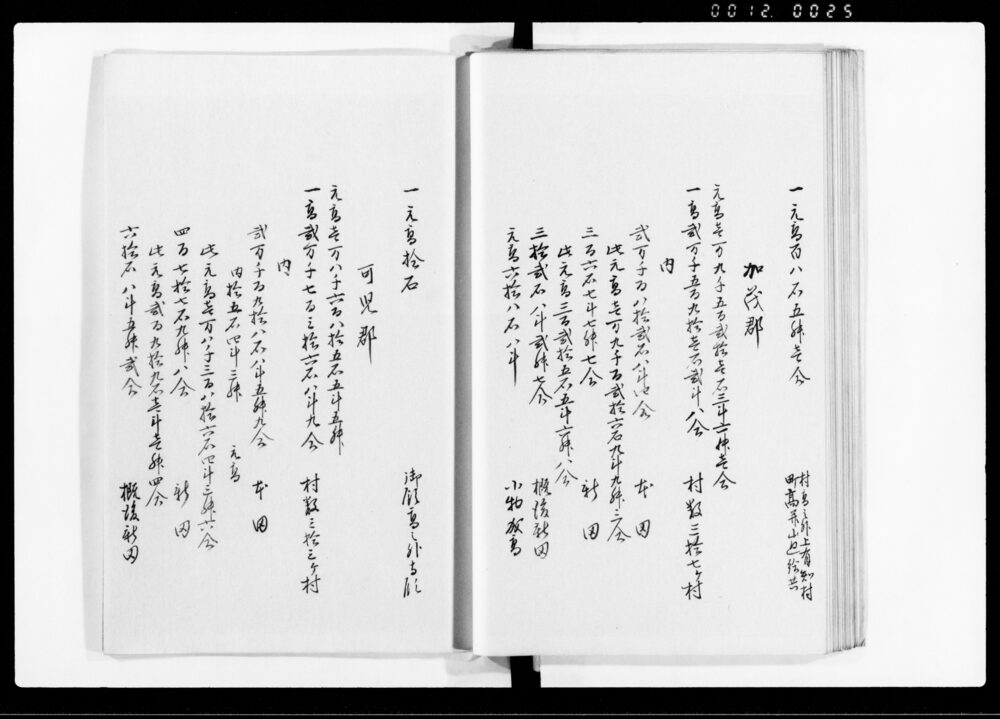 0012. 0025
一元高百八石五升壱合
村高之外上有知村
町高并山迄給共
加茂郡
元高壱万九千五百弐拾壱石三斗六升壱合
一高弐万千五百九拾壱石弐斗八合 村数三拾七ヶ村
内
弐万千百八拾弐石八斗四合 本田
此元高壱万九千百弐拾六石九斗九升三合
三百六石七斗七升七合 新田
此元高三百弐拾五石五斗六升八合
三拾弐石八斗弐升七合 概後新田
元高六拾八石八斗 小物成高
一元高拾石 御領高之外寺領
可児郡
元高壱万八千六百八拾五石五斗五升
一高弐万千七百三拾六石八斗九合 村数三拾三ヶ村
内
弐万千百九拾八石八斗五升九合 本田
内拾五石四斗三升 元高
此元高壱万八千三百八拾六石四斗三升六合
四百七拾七石九升八合 新田
此元高弐百九拾九石壱斗壱升四合
六拾石八斗五升弐合 概後新田